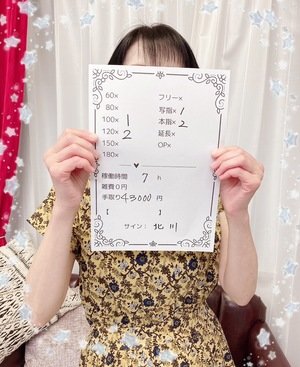 60×
80×
100× 1
120× 2
150×
180×
フリー×
写指× 1
本指× 2
延長×
OP×
稼働時間 7 h
雑費0円
手取り 43000 円
【 】
サイン： 北川